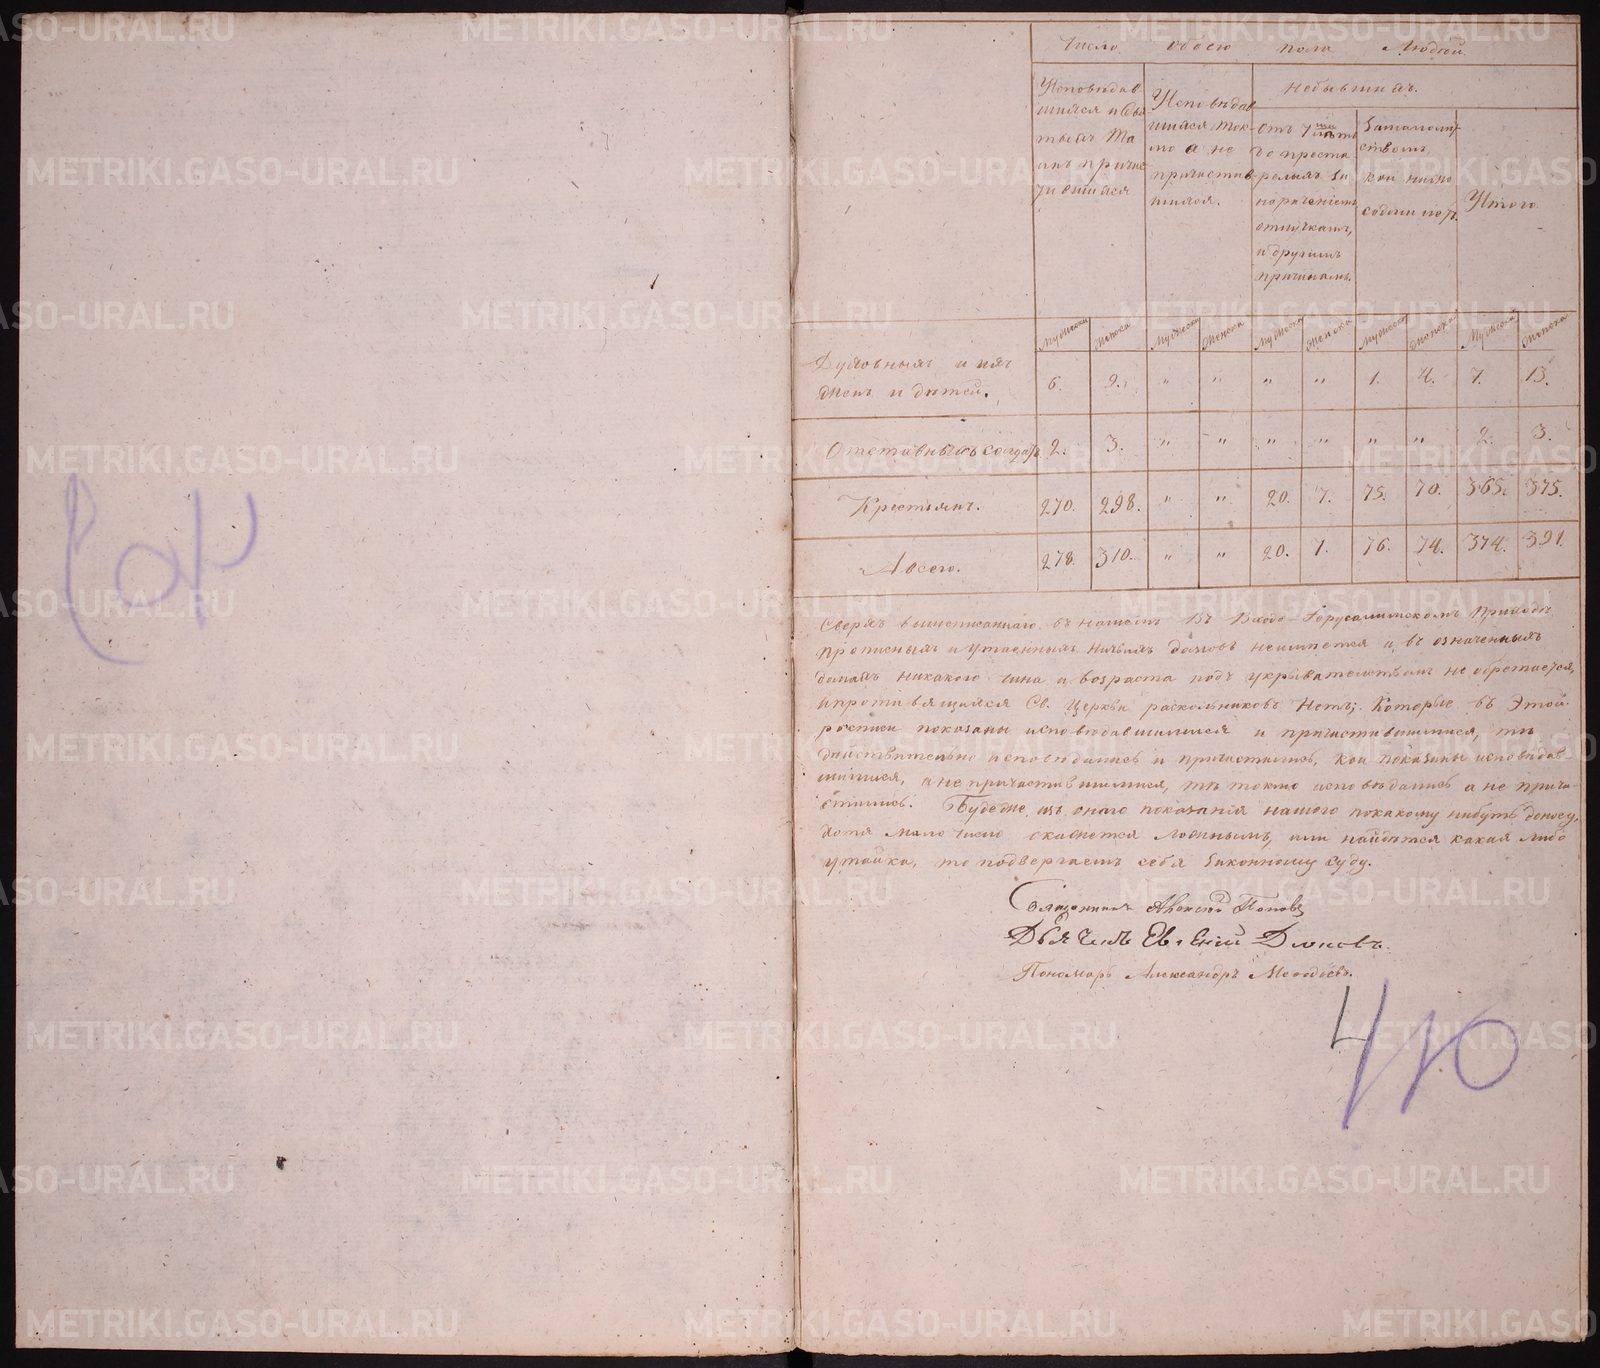 Число обоего пола людей.
Исповѣдав
шихся и Свя
тыхъ Та
инъ причас
тившихся
Исповѣдав
шихся ток
мо а не
причастив
шихся.
Небывшихъ.
отъ 7ми лѣтъ
до преста
релыхъ за
отлучками,
и другими
причинами.
За малолѣт
ствомъ
кои ниже
седьми лѣт.
Итого
Мужеска Женска Мужеска Женска Мужеска Женска Мужеска Женска Мужеска Женска
Духовныхъ и ихъ
женъ и дѣтей. 6. 9. " " " " 1. 4. 7. 13.
Отставныхъ солдатъ 2. 3. " " " " " " 2. 3.
Крестьянъ. 270. 298. " " 20. 7. 75. 70. 365. 375.
А всего. 278. 310. " " 20. 7. 76. 74. 374. 391.
Сверхъ вышеписаннаго въ нашемъ Входо-Іерусалимскомъ Приходѣ
прописныхъ и утаенныхъ никакихъ домовъ неимѣется и въ означенныхъ
домахъ никакого чина и возраста подъ укрывательствомъ не обретается,
и противящихся Св. Церкви раскольниковъ Нетъ; Которые въ Этой
росписи показаны исповѣдавшимися и причастившимися, тѣ
дѣйствительно исповѣдались и причастились, кои показаны исповѣдав-
шимися, а не причастившимися, тѣ токмо исповѣдались а не прича-
стились. Будеже изъ онаго показанія нашего покакому нибуть доносу,
хотя мало число окажется ложнымъ, или найдется какая либо
утайка, то подвергаемъ себя законному суду.
Священникъ Алексѣй Поповъ
Дьячекъ Евгеній
Пономарь Александръ Меѳодіевъ.
410
METRIKI.GASO-URAL.RU